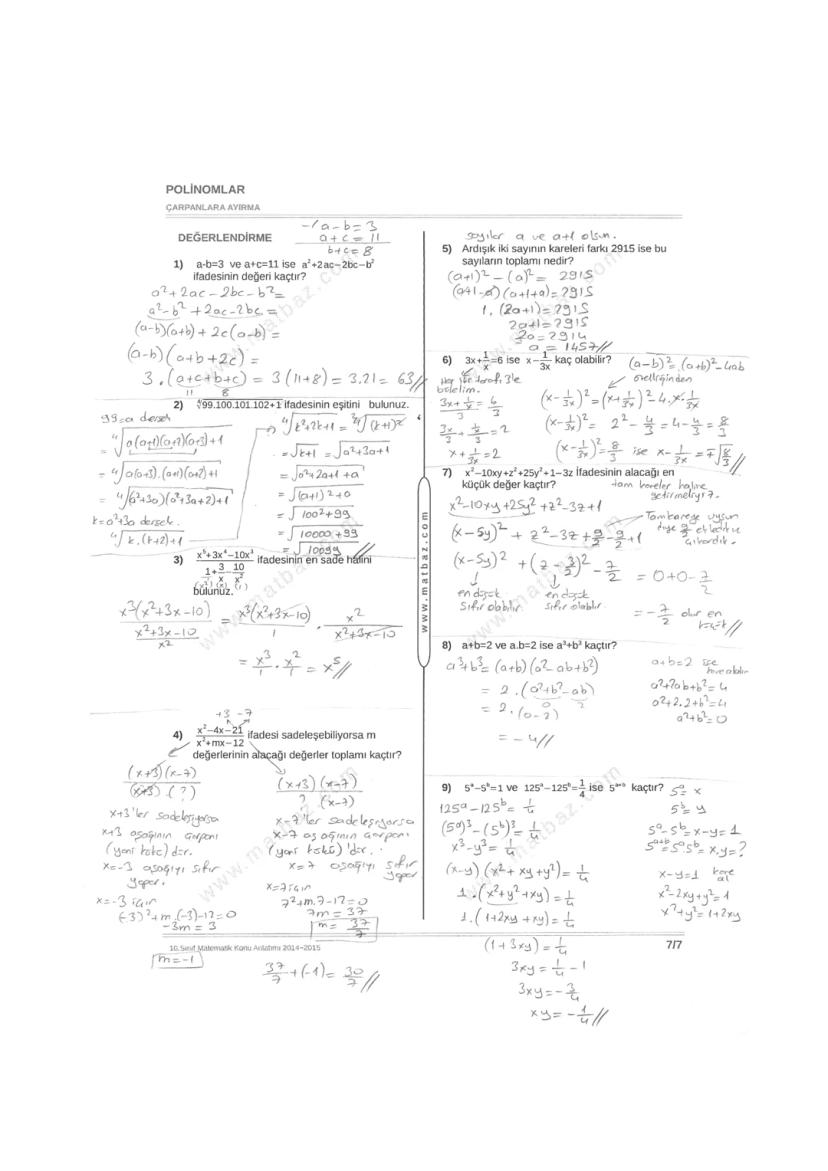 POLİNOMLAR
ÇARPANLARA AYIRMA
DEĞERLENDİRME
-/ a-b=3
a+c=11
b+c=8
1) a-b=3 ve a+c=11 ise a²+2ac-2bc-b²
ifadesinin değeri kaçtır?
a²+2ac-2bc-b²=
a²-b²+2ac-2bc=
(a-b)(a+b)+2c(a-b)=
(a-b)(a+b+2c)=
3.(a+c+b+c)=3(11+8)=3.21=63//
11 8
2) ∜99.100.101.102+1 ifadesinin eşitini bulunuz.
99=a dersek
= ∜a(a+1)(a+2)(a+3)+1
= ∜a(a+3).(a+1)(a+2)+1
= ∜(a²+3a)(a²+3a+2)+1
k=a²+3a dersek.
∜k.(k+2)+1
∜k²+2k+1 = ∜(k+1)²
=√k+1 =√a²+3a+1
=√a²+2a+1+a
=√(a+1)²+a
=√100²+99
=√10000+99
=√10099
3) x⁵+3x⁴-10x³ ifadesinin en sade halini
1+3/x-10/x²
(x²) (x) (1)
bulunuz.
x³(x²+3x-10) = x³(x²+3x-10) . x²
x²+3x-10 1 x²+3x-10
x²
= x³/1 . x²/1 = x⁵//
+3 -7
4) x²-4x-21 ifadesi sadeleşebiliyorsa m
x²+mx-12
değerlerinin alacağı değerler toplamı kaçtır?
(x+3)(x-7)
(x+3)(?)
x+3'ler sadeleşiyorsa
x+3 aşağının çarpanı
(yani kökü) dür.
x=-3 aşağıyı sıfır
yapar.
x=-3 için
(-3)²+m.(-3)-12=0
-3m=3
m=-1
(x+3)(x-7)
? (x-7)
x-7'ler sadeleşiyorsa
x-7 aşağının çarpanı
(yani kökü)'dür.
x=7 aşağıyı sıfır
yapar
x=7 için
7²+m.7-12=0
7m=37
m=37/7
10.Sınıf Matematik Konu Anlatımı 2014-2015
37/7+(-1)=30/7//
www.matbaz.com
sayılar a ve a+1 olsun.
5) Ardışık iki sayının kareleri farkı 2915 ise bu
sayıların toplamı nedir?
(a+1)²-(a)²=2915
(a+1-a)(a+1+a)=2915
1.(2a+1)=2915
2a+1=2915
2a=2914
a=1457//
6) 3x+1/x=6 ise x-1/3x kaç olabilir?
(a-b)²=(a+b)²-4ab
özelliğinden
Her iki tarafı 3'le
bölelim.
3x+1/x=6
3 3
3x/3+1/x/3=2
x+1/3x=2
(x-1/3x)²=(x+1/3x)²-4.x.1/3x
(x-1/3x)²=2²-4/3=4-4/3=8/3
(x-1/3x)²=8/3 ise x-1/3x=∓√8/3//
7) x²-10xy+z²+25y²+1-3z İfadesinin alacağı en
küçük değer kaçtır?
tam kareler haline
getirmeliyiz.
x²-10xy+25y²+z²-3z+1
(x-5y)²+z²-3z+9/2-9/2+1
Tamkareye uysun
diye 9/2 ekledik
çıkardık.
(x-5y)²+(z-3/2)²-7/2
en düşük
sıfır olabilir
en düşük
sıfır olabilir.
=0+0-7/2
=-7/2 olur en
küçük//
8) a+b=2 ve a.b=2 ise a³+b³ kaçtır?
a³+b³=(a+b)(a²-ab+b²)
=2.(a²+b²-ab)
0 2
=2.(0-2)
=-4//
a+b=2 ise
kare alalım
a²+2ab+b²=4
a²+2.2+b²=4
a²+b²=0
9) 5ᵃ-5ᵇ=1 ve 125ᵃ-125ᵇ=1/4 ise 5ᵃ⁺ᵇ kaçtır?
125ᵃ-125ᵇ=1/4
(5ᵃ)³-(5ᵇ)³=1/4
x³-y³=1/4
(x-y)(x²+xy+y²)=1/4
1.(x²+y²+xy)=1/4
1.(1+2xy+xy)=1/4
(1+3xy)=1/4
3xy=1/4-1
3xy=-3/4
xy=-1/4//
5ᵃ=x
5ᵇ=y
5ᵃ-5ᵇ=x-y=1
5ᵃ⁺ᵇ=5ᵃ5ᵇ=x.y=?
x-y=1 kare
al
x²-2xy+y²=1
x²+y²=1+2xy
7/7